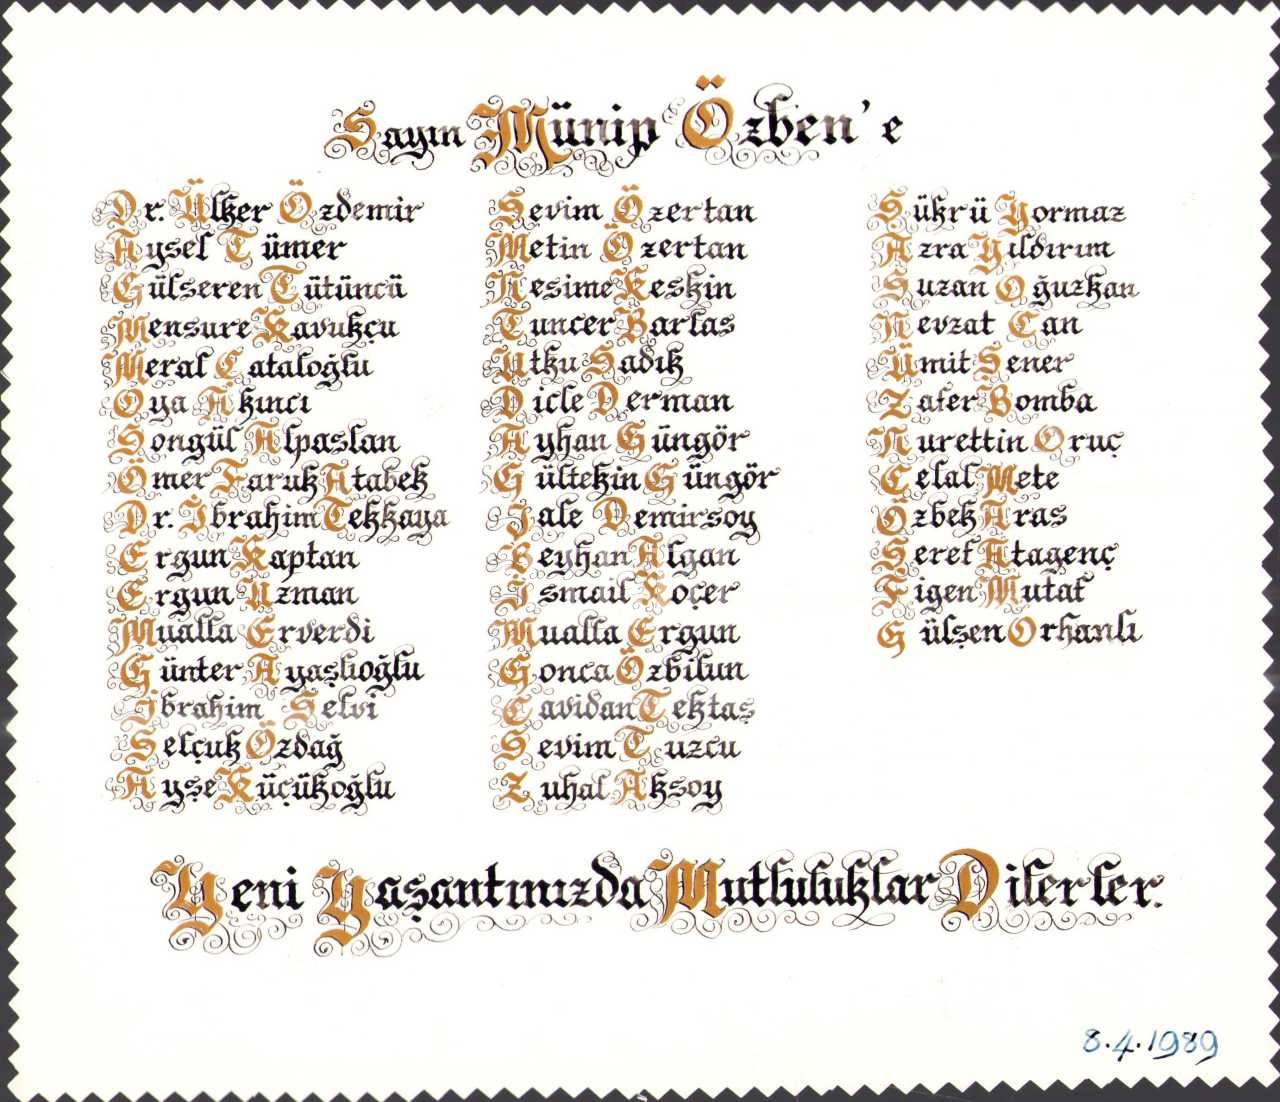 Sayın Münip Özben'e
Dr. Ülker Özdemir
Aysel Tümer
Gülseren Tütüncü
Mensure Kavukçu
Meral Cataloğlu
Oya Akıncı
Songül Alpaslan
Ömer Faruk Atabek
Dr. İbrahim Tekkaya
Ergun Kaptan
Ergun Uzman
Mualla Erverdi
Günter Ayaşlıoğlu
İbrahim Selvi
Selçuk Özdağ
Ayşe Küçükoğlu
Sevim Özertan
Metin Özertan
Nesime Keskin
Tuncer Barlas
Utku Sadık
Dicle Derman
Ayhan Güngör
Gültekin Güngör
Jale Demirsoy
Beyhan Algan
İsmail Koçer
Mualla Ergun
Gonca Özbilun
Cavidan Tektaş
Sevim Tuzcu
Zuhal Aksoy
Sükrü Yormaz
Azra Yıldırım
Suzan Oğuzkan
Nevzat Can
Ümit Sener
Zafer Bomba
Nurettin Oruç
Celal Mete
Özbek Aras
Seref Atagenç
Figen Mutaf
Gülşen Orhanlı
Yeni Yaşantınızda Mutluluklar Dilerler.
8.4.1989